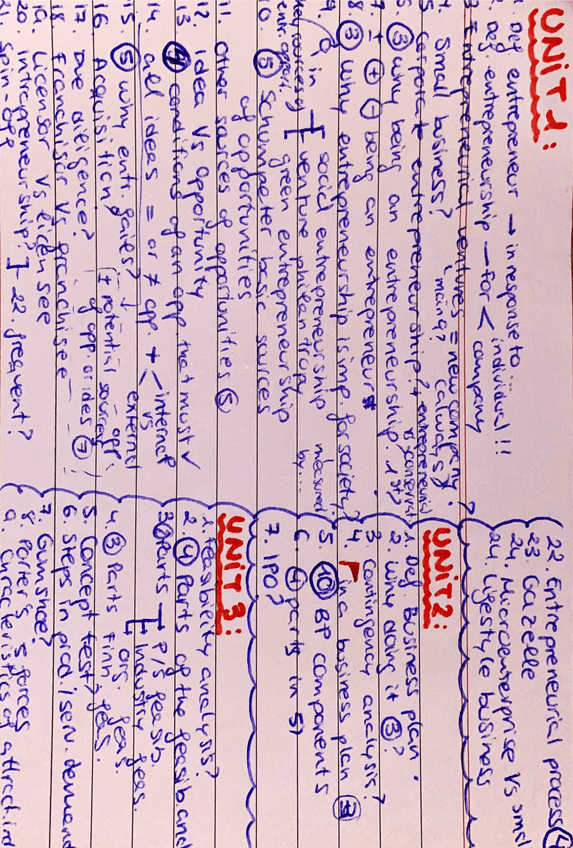 UNIT 1:
1. Def entrepreneur → in response to...
2. Def. entrepreneurship — for < individual !!
company
3. Entrepreneurial ventures = new company
4. Small business? (always)
5. Corporate entrepreneurship?
6. ③ Why being an entrepreneurship
7. + ⊕ ⊖ being an entrepreneur
8. ③ Why entrepreneurship is imp for society?
in [ social entrepreneurship measured by...
venture philanthropy
green entrepreneurship
10. ⑤ Schumpeter basic sources
of opportunities
11. Other sources of opportunities ⑤
12. Idea Vs Opportunity
13. ④ conditions of an opp. that must ✓
14. all ideas = or ≠ opp. + < internet
vs
external
15. ⑤ Why entr. gates? ↓
[≠ potential sources
of opp. or ides ⑦
16. Acquisition?
17. Due diligence?
18. Franchisor Vs Franchisee
19. Licensor Vs Licensee
20. Intrapreneurship? ] → 22 frequent?
21. Spin-off
22. Entrepreneurial process ④
23. Gazelle
24. Microenterprise Vs smal
24. Lifestyle business
UNIT 2:
1. Def. Business plan.
2. Why doing it ③?
3. Contingency analysis?
4. in a business plan ③
5. ⑩ BP components
6. ④ parts in 5)
7. IPO?
UNIT 3:
1. Feasibility analysis?
2. ④ Parts of the feasib and
3. ② Parts [ P/S feasib
Industry feas.
org. feas.
4. ③ Parts Finn. feas.
5. Concept test?
6. Steps in prod/serv. demand
7. Gumshoe?
8. Porter's 5 forces
9. Characteristics of attractive ind